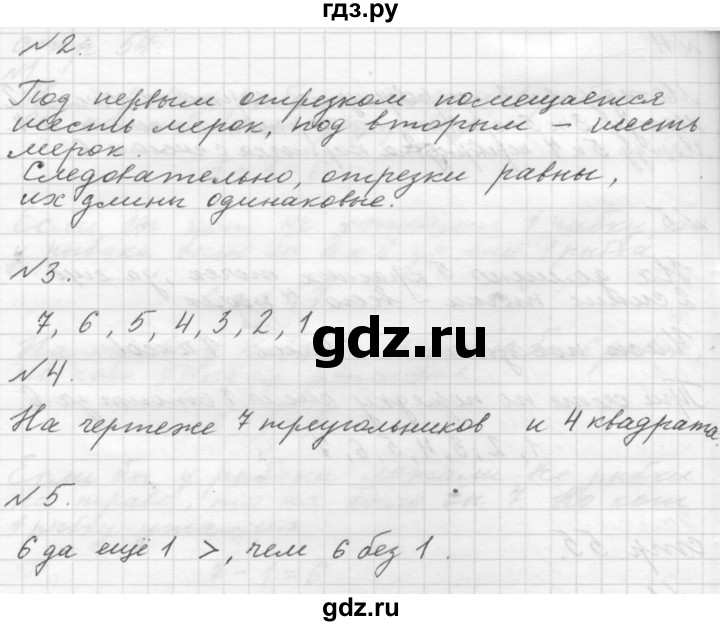 гдз.ру
№2.
Под первым отрезком помещается
шесть мерок, под вторым – шесть
мерок.
Следовательно, отрезки равны,
их длины одинаковые.
№3.
7, 6, 5, 4, 3, 2, 1
gdz.ru
№4.
На чертеже 7 треугольников и 4 квадрата.
№5.
6 да ещё 1 >, чем 6 без 1.
gdz.ru